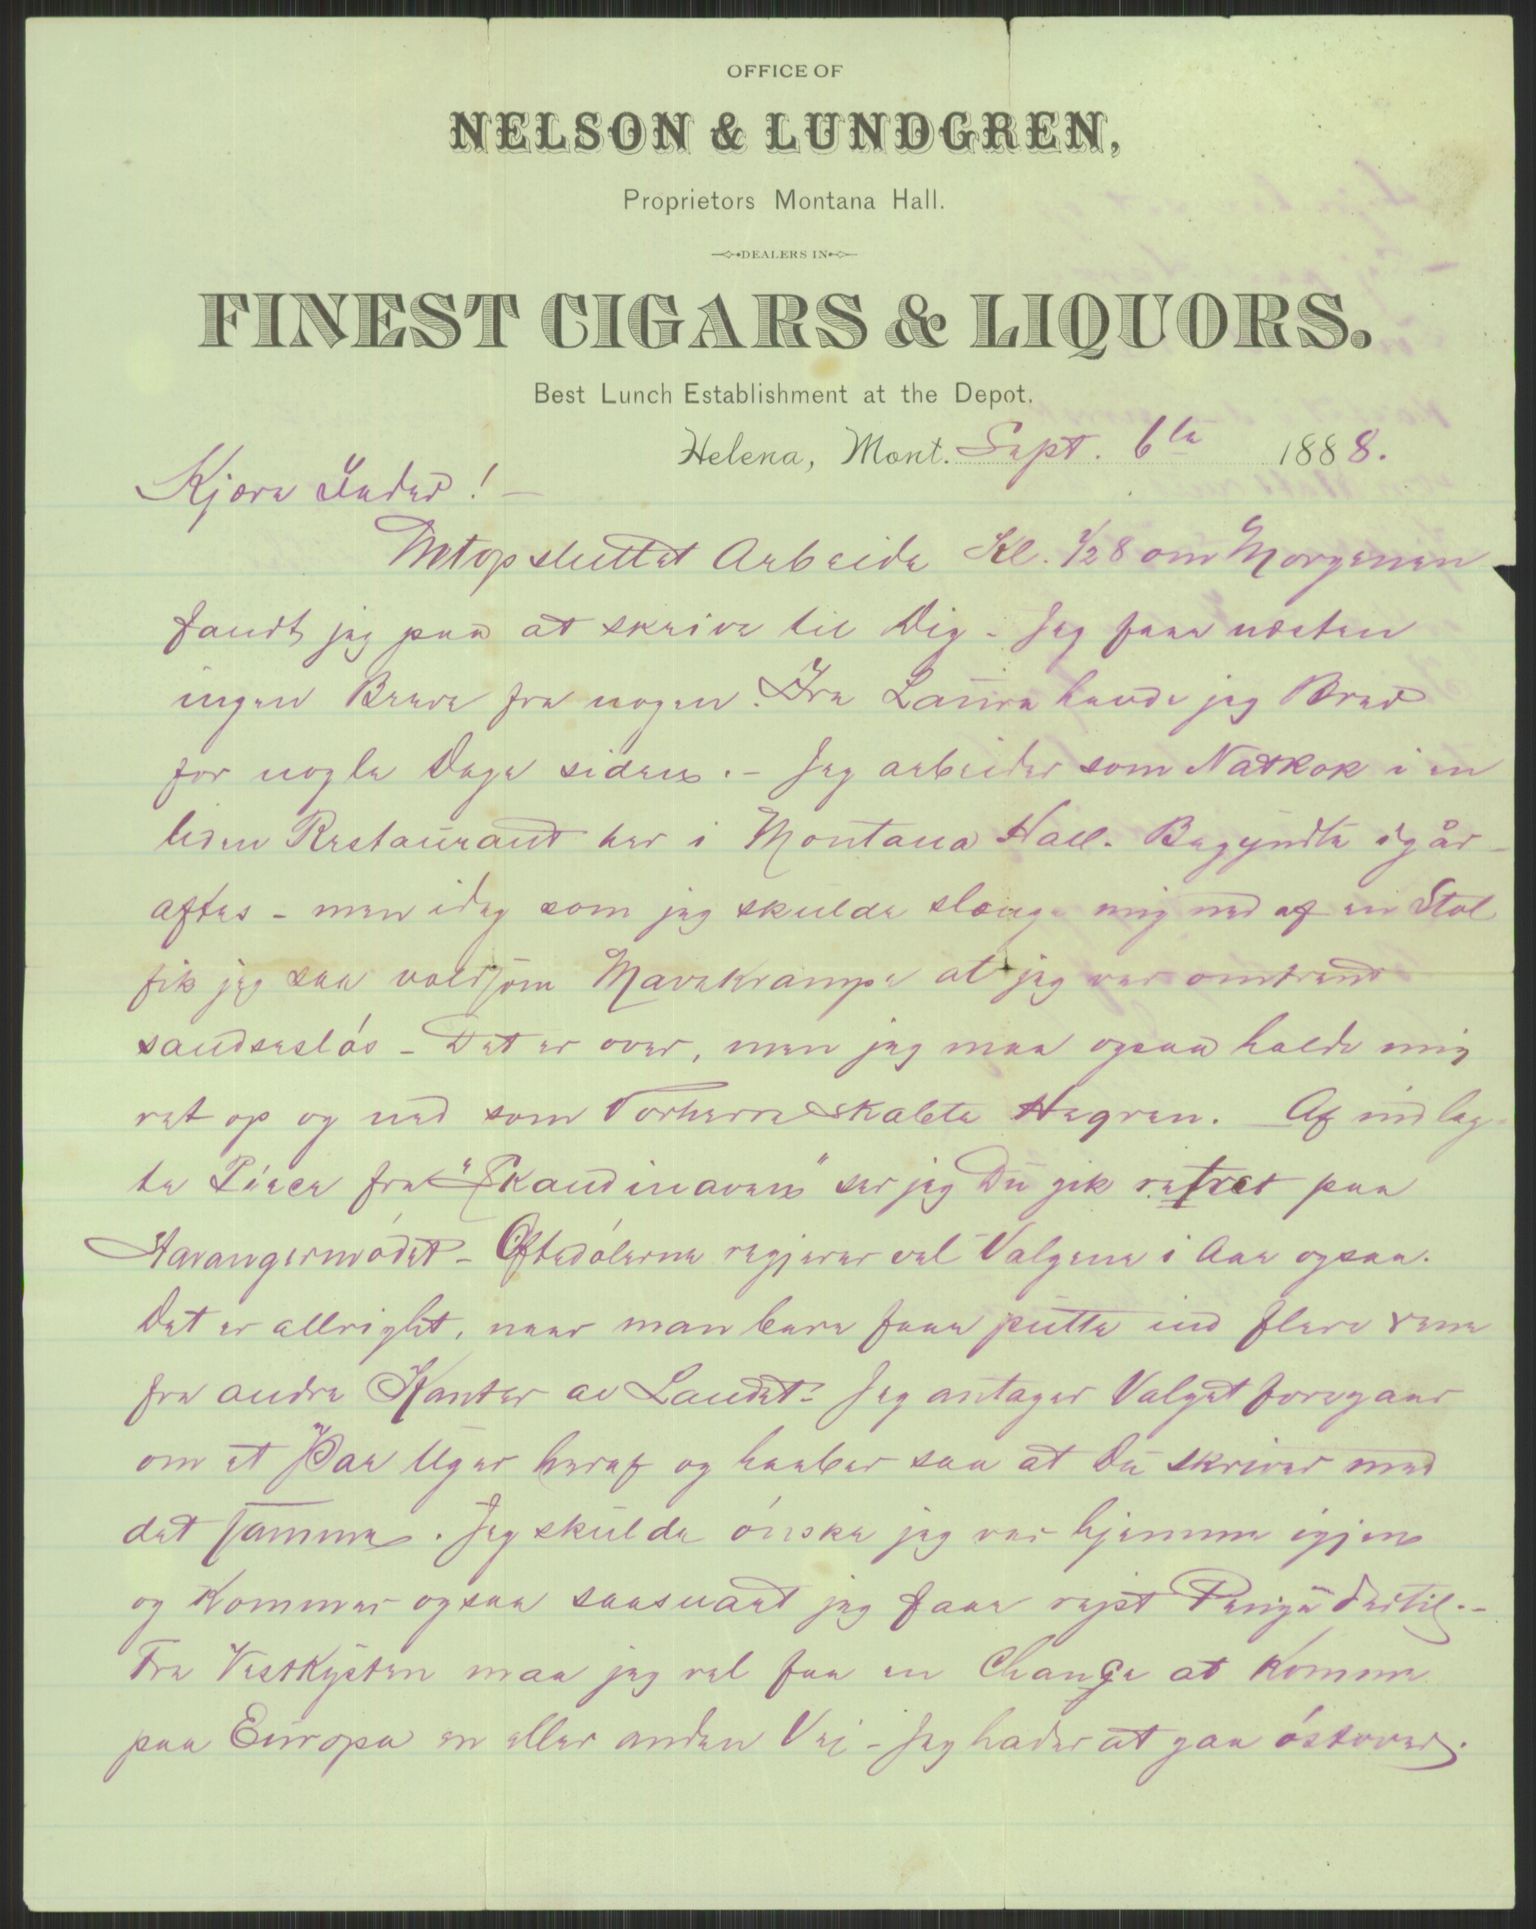 OFFICE OF
NELSON & LUNDGREN,
Proprietors Montana Hall.
DEALERS IN
FINEST CIGARS & LIQUORS.
Best Lunch Establishment at the Depot.
Helena, Mont. Sept. 6te 1888.
Kjære Fader! —
Netop sluttet Arbeide Kl. 1/2 8 om Morgenen
fandt jeg paa at skrive til Dig - Jeg faar næsten
ingen Breve fra nogen. Fra Laura havde jeg Brev
for nogle Dage siden. - Jeg arbeider som Natkok i en
liden Restaurant her i Montana Hall. Begyndte igår
aftes - men idag som jeg skulde slænge mig ned af en Stol
fik jeg saa voldsom Mavekrampe at jeg var omtrent
sandseslós - Det er over, men jeg maa ogsaa holde mig
ret op og ned som Vorherre skabte Hegren. Af indlag-
te Piece fra "Skandinaven" ser jeg Du gik rafret paa
Stavangermódet - Oftedólerne regjerer vel Valgene i Aar ogsaa.
Det er allright, naar man bare faar putte ind flere rene
fra andre Kanter av Landet - Jeg antager Valget foregaar
om et Par Uger heraf og haaber saa at Du skriver med
det samme. Jeg skulde ónske jeg var hjemme igjen
og kommer ogsaa saasnart jeg faar rejst Penge dertil. -
Fra Vestkysten maa jeg vel faa en Change at komme
paa Europa en eller anden Vej - Jeg hader at gaa óstover.